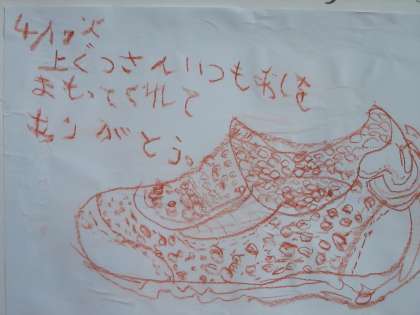 上ぐつさんいつもあしを
まもってくれて
ありがとう。